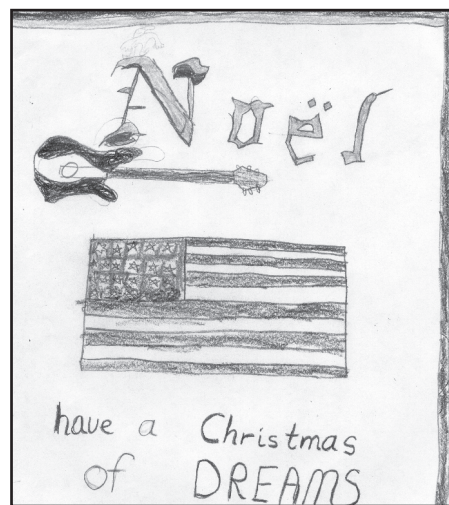 Noël
have a Christmas
of DREAMS